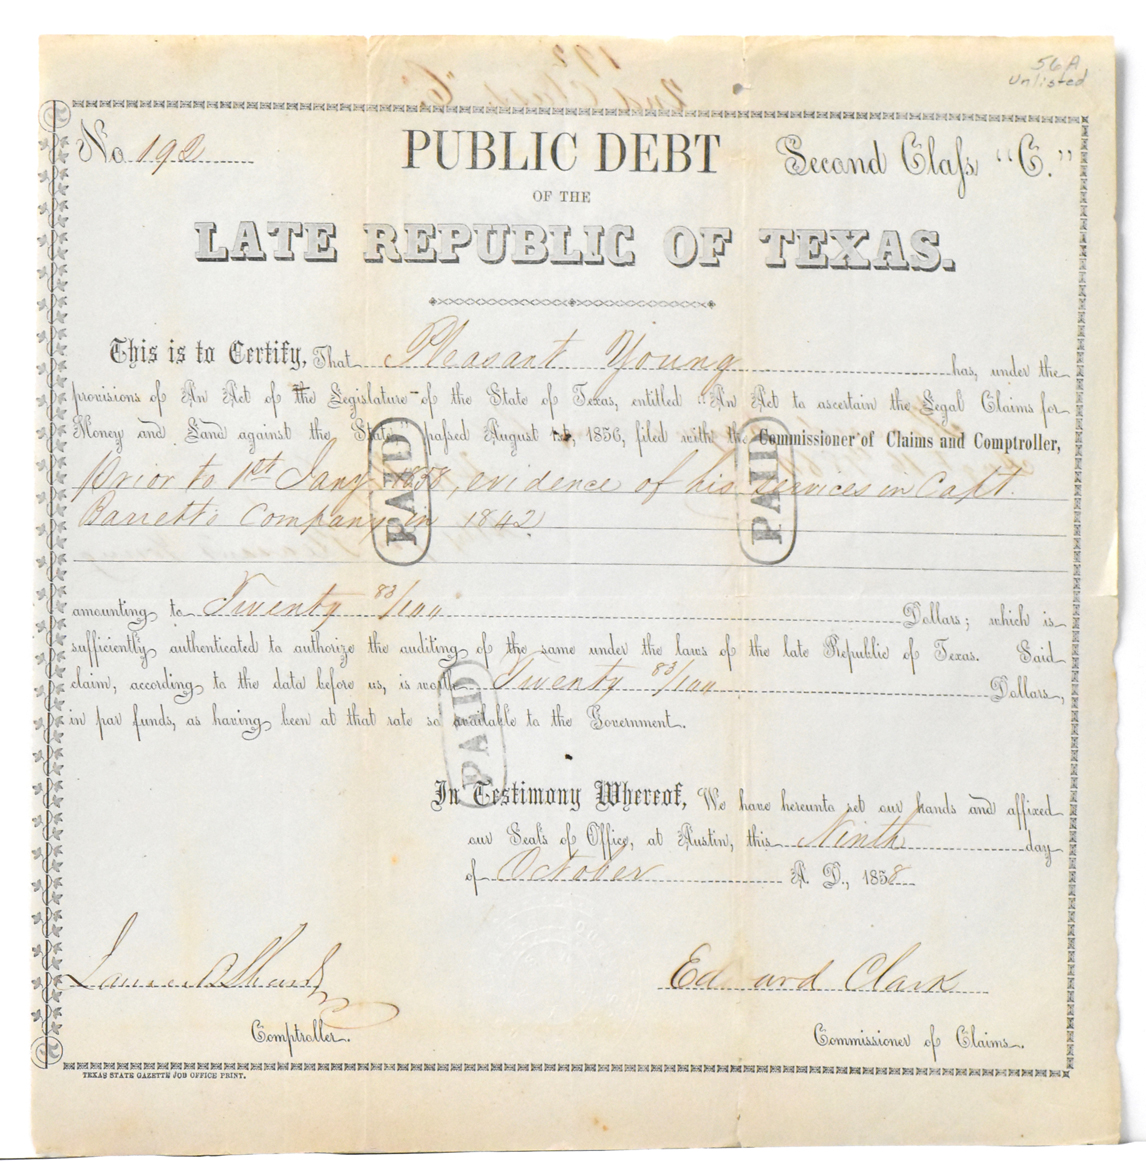 56A
Unlisted
192
2nd Class "C"
No. 192
PUBLIC DEBT
Second Claſs "C."
OF THE
LATE REPUBLIC OF TEXAS.
This is to Certify, That Pleasant Young has, under the
provisions of An Act of the Legislature of the State of Texas, entitled "An Act to ascertain the Legal Claims for
Money and Land against the State" passed August 1st, 1856, filed with the Commissioner of Claims and Comptroller,
Prior to 1st Jany 1858, evidence of his services in Capt.
Barrett's Company in 1842
PAID
PAID
amounting to Twenty 83/100 Dollars; which is
sufficiently authenticated to authorize the auditing of the same under the laws of the late Republic of Texas. Said
claim, according to the data before us, is worth Twenty 83/100 Dollars,
in par funds, as having been at that rate so available to the Government.
PAID
In Testimony Whereof, We have hereunto set our hands and affixed
our Seals of Office, at Austin, this Ninth day
of October A. D., 1858
Edward Clark
Comptroller.
Commissioner of Claims.
TEXAS STATE GAZETTE JOB OFFICE PRINT.